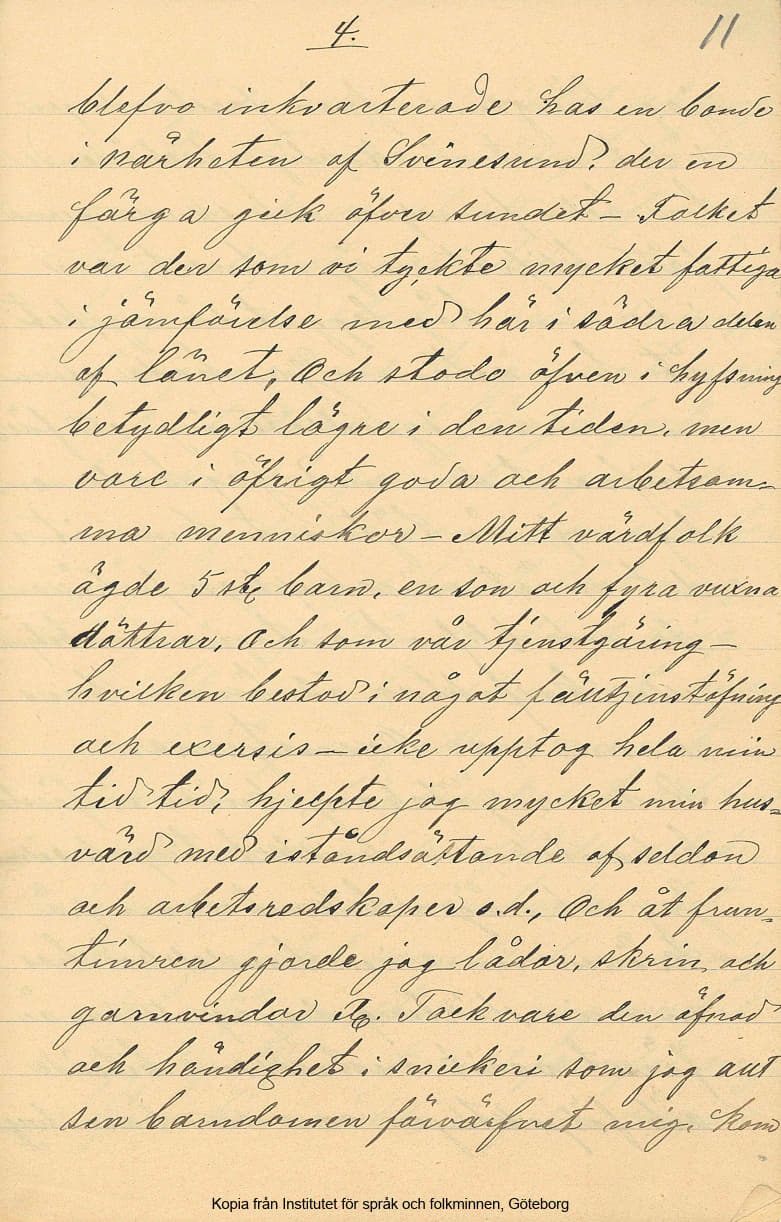 4.
11
blefvo inkvarterade hos en bonde
i närheten af Svinesund, der en
färga gick öfver sundet – Folket
var der som vi tyckte mycket fattiga
i jämförelse med här i södra delen
af länet, Och stodo öfven i hyfsning
betydligt lägre i den tiden, men
vore i öfrigt goda och arbetsam=
ma menniskor – Mitt värdfolk
ägde 5 st barn, en son och fyra vuxna
döttrar, Och som vår tjenstgöring –
hvilken bestod i något fälttjenstöfning
och exersis – icke upptog hela min
tid tid, hjelpte jag mycket min hus=
värd med iståndsättande af seldon
och arbetsredskaper o.d., Och åt frun=
timren gjorde jag lådor, skrin och
garnvindor &. Tack vare den öfnad
och händighet i snickeri som jag allt
sen barndomen förvärfvat mig, kom
Kopia från Institutet för språk och folkminnen, Göteborg